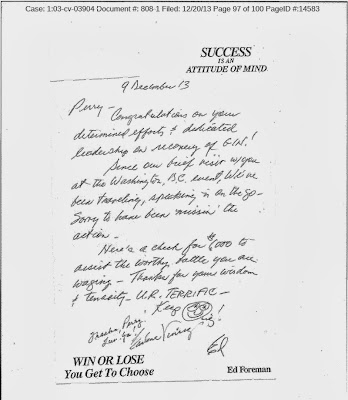 Case: 1:03-cv-03904 Document #: 808-1 Filed: 12/20/13 Page 97 of 100 PageID #:14583
SUCCESS
IS AN
ATTITUDE OF MIND
9 December 13
Perry –
Congratulations on your
determined efforts & dedicated
leadership on recovery of GIN!
Since our brief visit w/you
at the Washington, D.C. event, We've
been traveling, speaking & on the go-
Sorry to have been 'missin' the
action –
Here's a check for $1,000 to
assist the worthy battle you are
waging – Thanks for your wisdom
& tenacity – U.R. TERRIFIC –
Keep
Thanks, Perry,
Ed
WIN OR LOSE
You Get To Choose
Ed Foreman